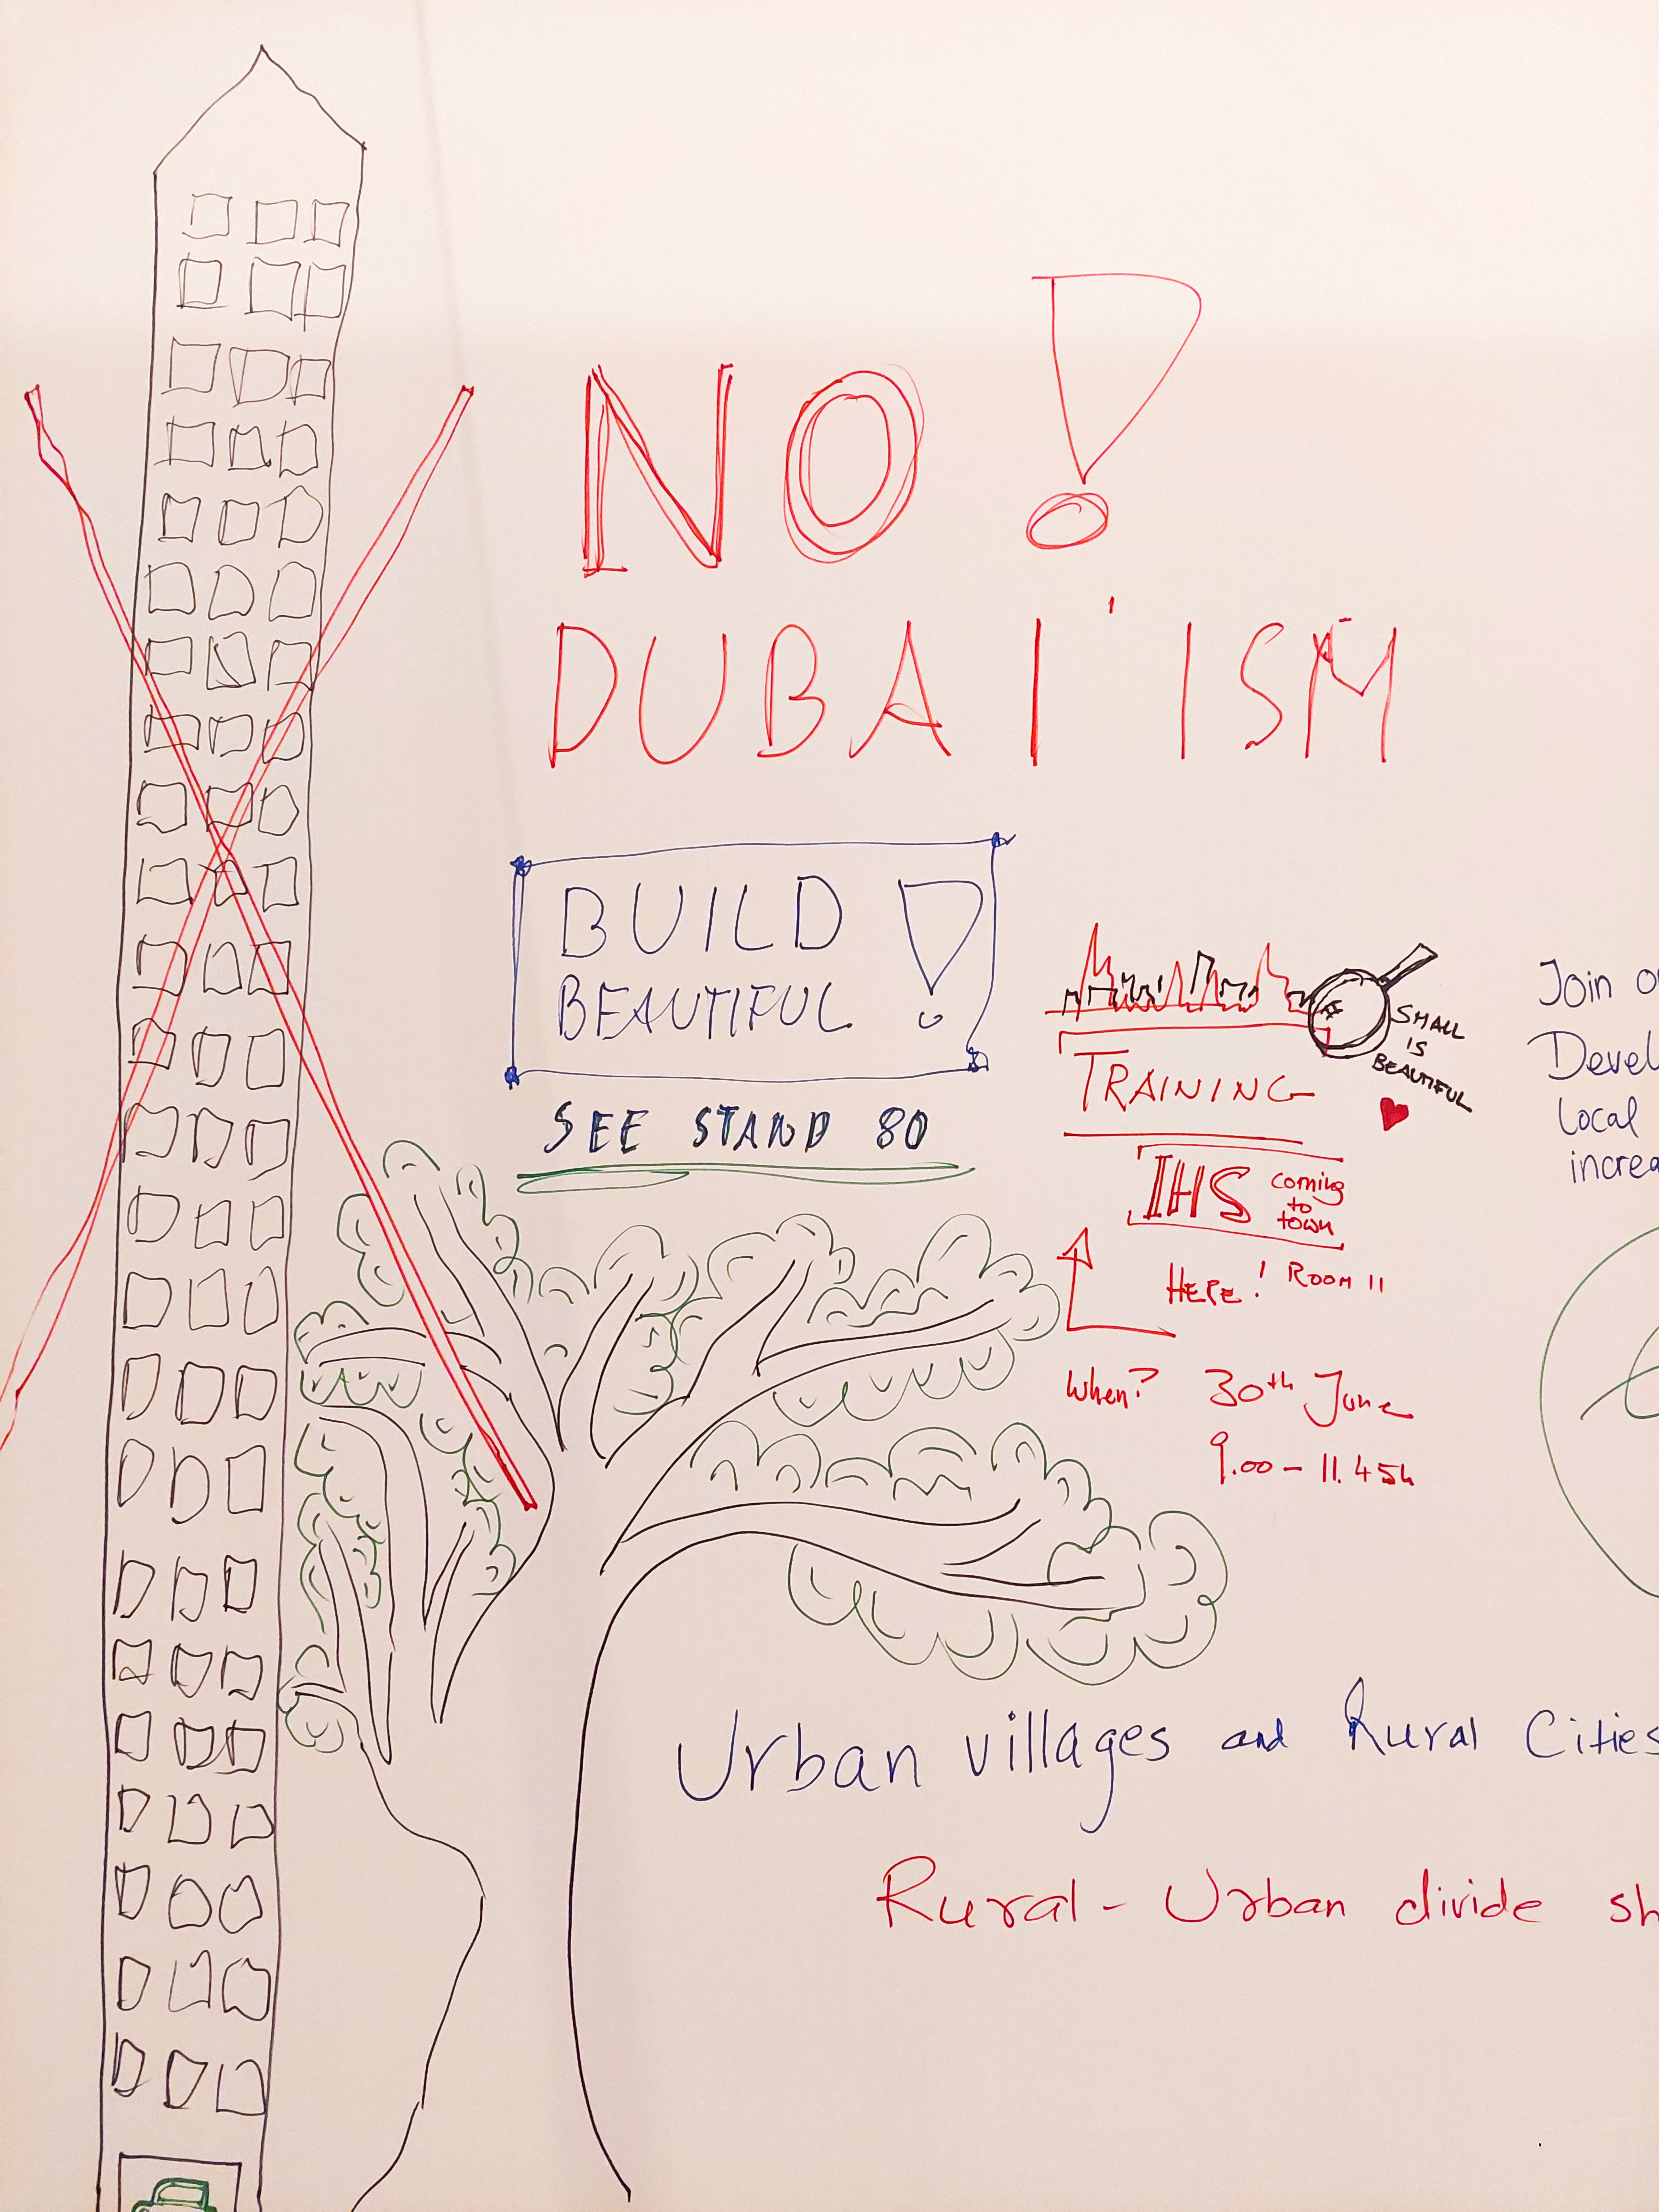 NO!
DUBAI'ISM
BUILD
BEAUTIFUL!
SEE STAND 80
SMALL
IS
BEAUTIFUL
TRAINING
IHS coming
to
town
HERE! ROOM 11
When? 30th June
9.00 - 11.45h
Join
Devel
Local
increa
Urban villages and Rural Cities
Rural - Urban divide sh